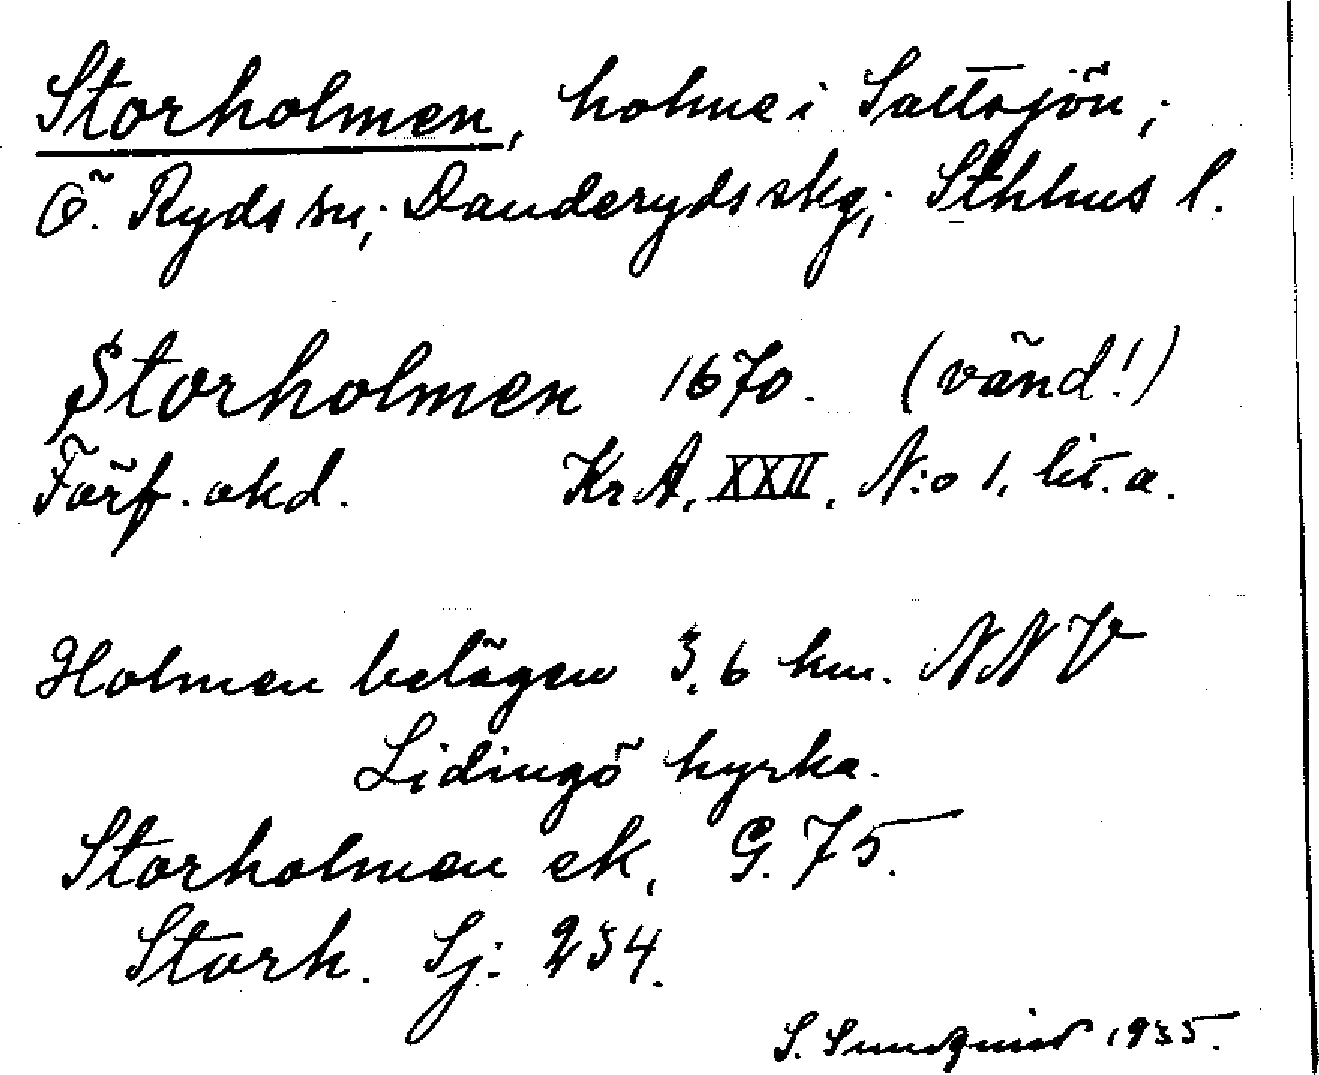 Storholmen, holme i Saltsjön;
Ö. Ryds sn; Danderyds skg; Sthlms l.
Storholmen 1670. (vänd!)
Förf. okd. KrA. XXII. N:o 1, lit. a.
Holmen belägen 3,6 km. NNV
Lidingö kyrka.
Storholmen ek. G. 75.
Storh. Sj: 234.
S. Sundquist 1935.